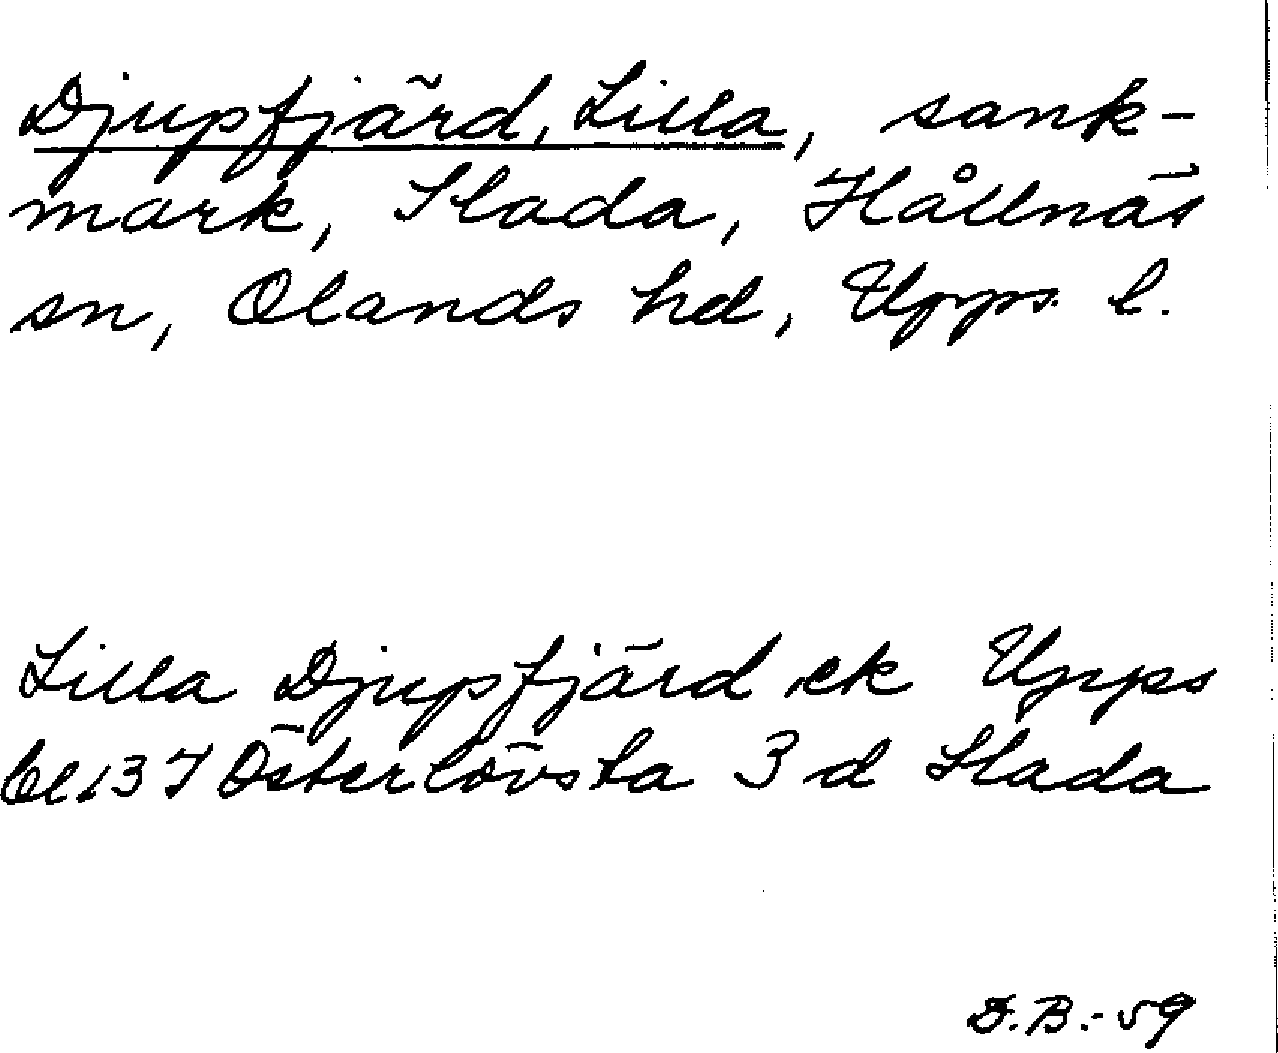 Djupfjärd, Lilla, sank-
mark, Slada, Hållnäs
sn, Olands hd, Upps. l.
Lilla Djupfjärd ek Upps
bl 13 I Österlövsta 3 d Slada
D.B.-59